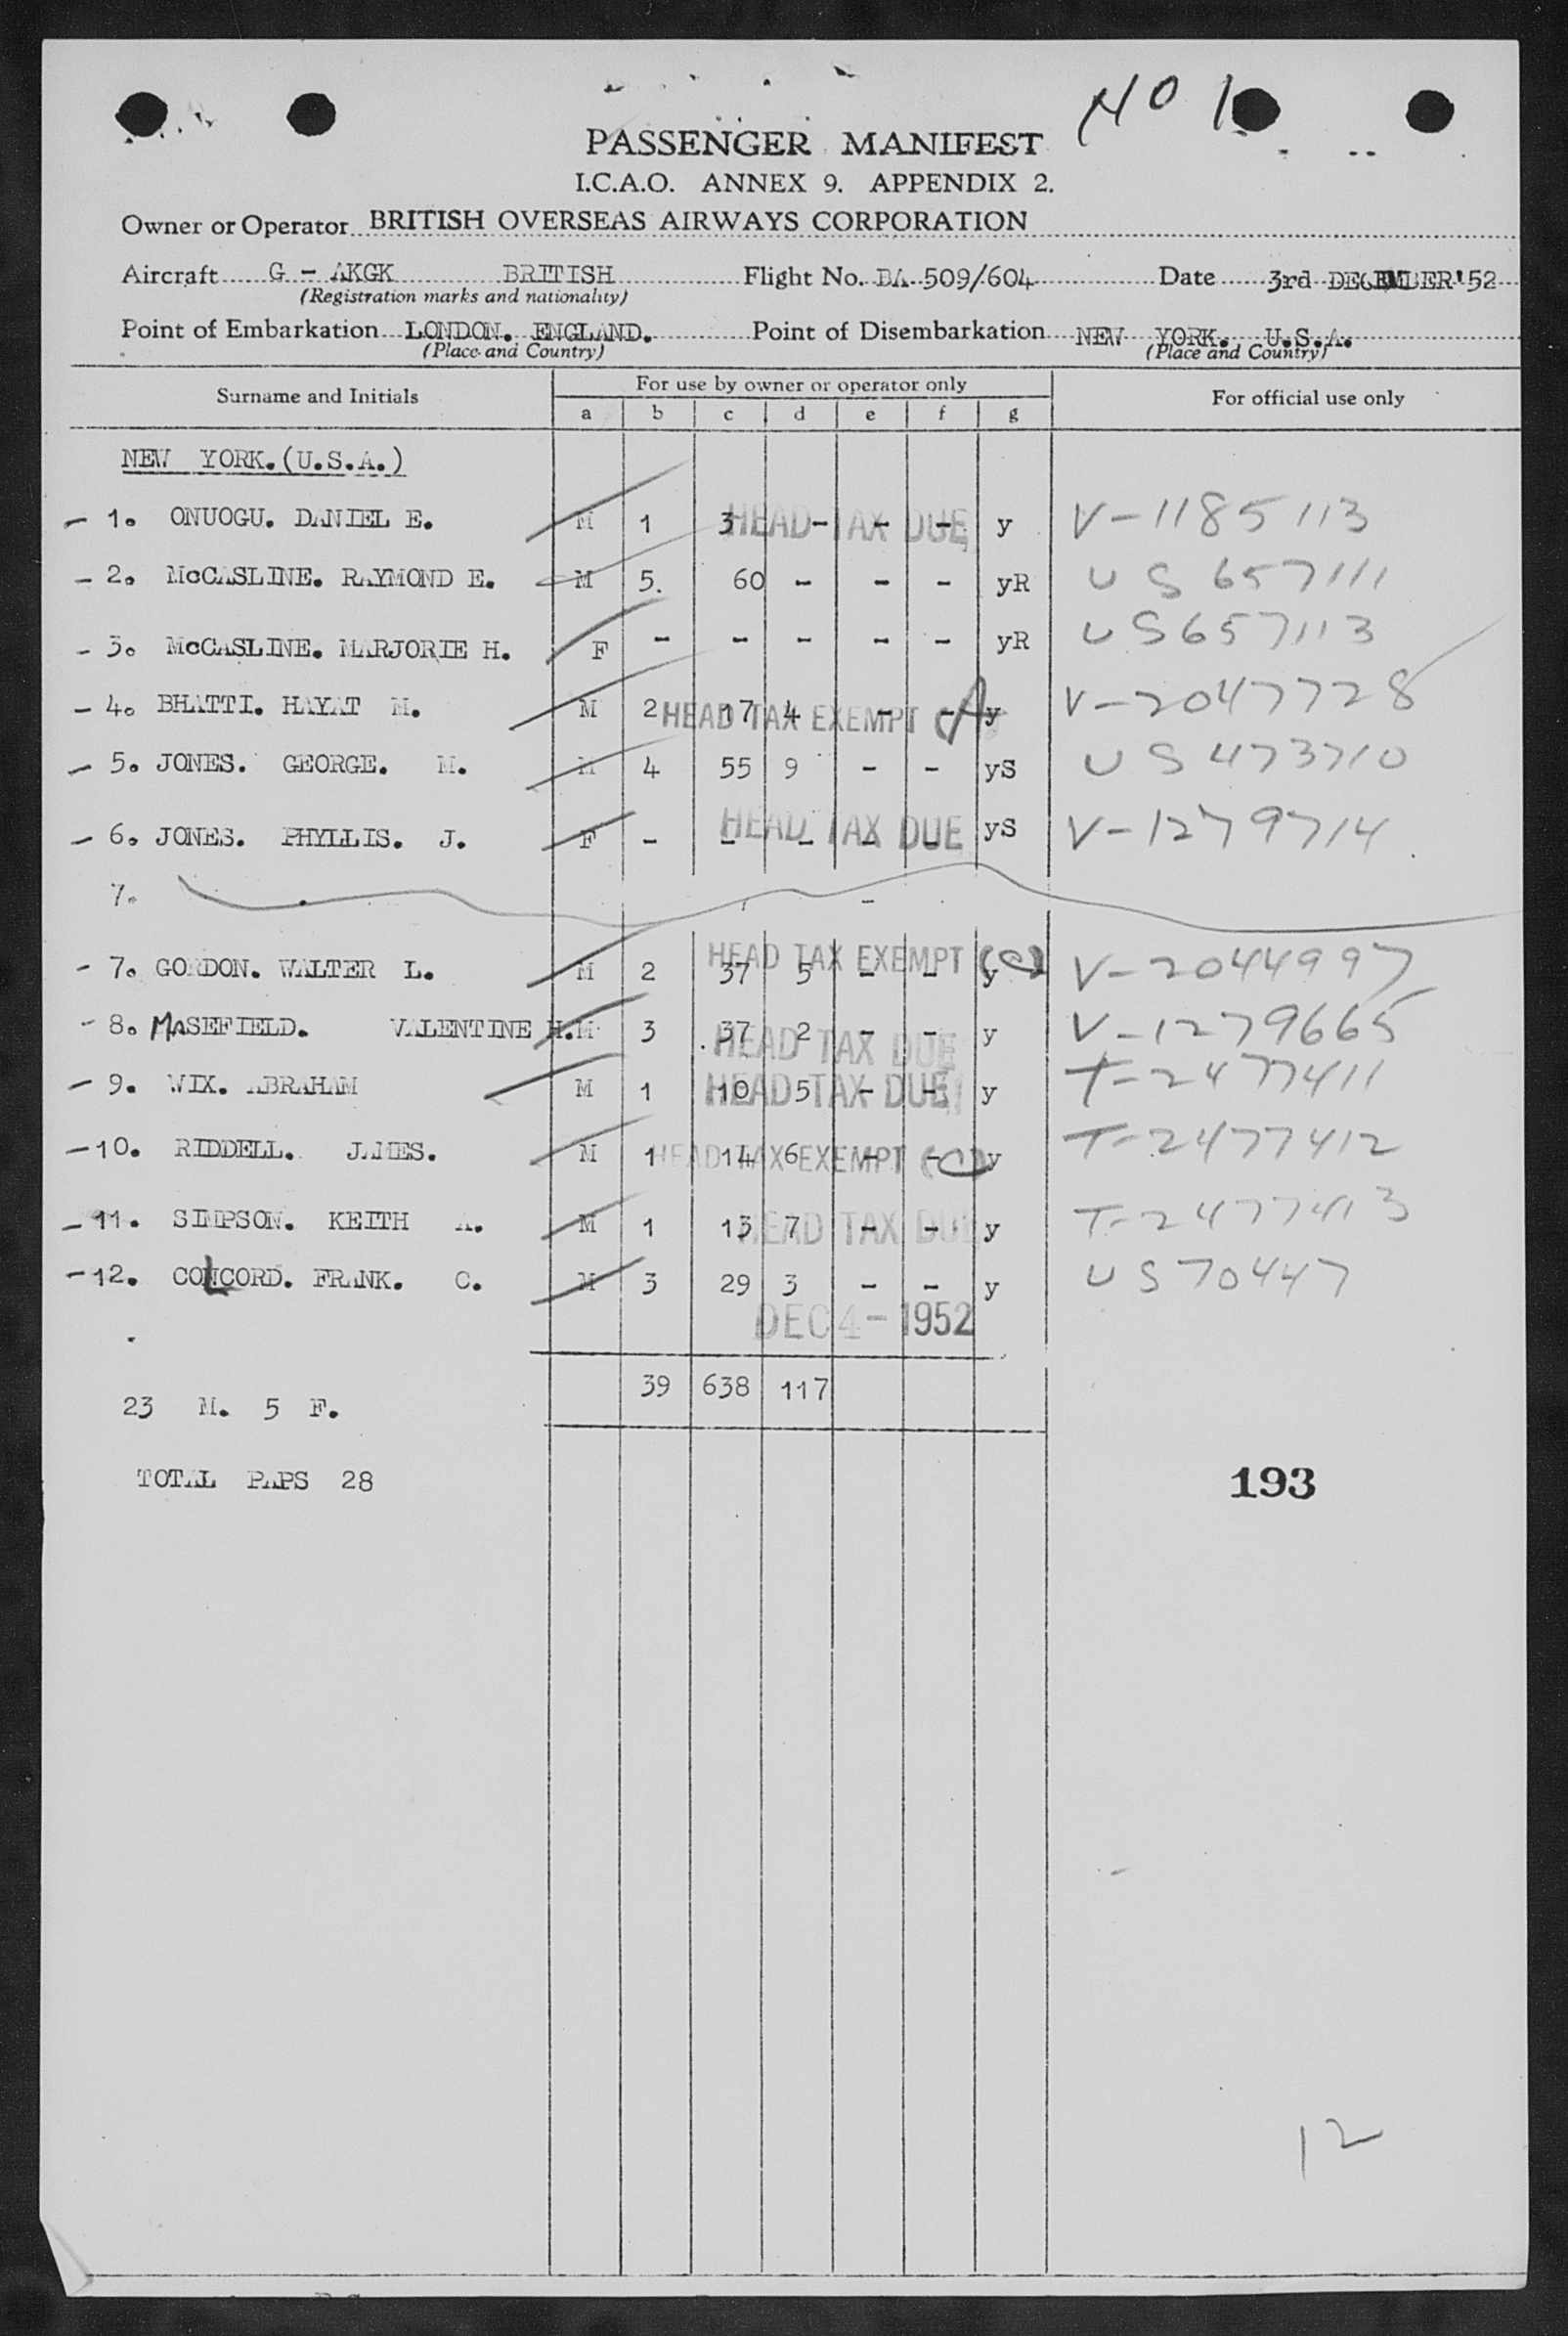 NO 1
PASSENGER MANIFEST
I.C.A.O. ANNEX 9. APPENDIX 2.
Owner or Operator BRITISH OVERSEAS AIRWAYS CORPORATION
Aircraft G - AKGK BRITISH Flight No. BA 509/604 Date 3rd DECEMBER '52
(Registration marks and nationality)
Point of Embarkation LONDON. ENGLAND. Point of Disembarkation NEW YORK. U.S.A.
(Place and Country) (Place and Country)
Surname and Initials For use by owner or operator only For official use only
a b c d e f g
NEW YORK. (U.S.A.)
- 1. ONUOGU. DANIEL E. M 1 3 - - - y V-1185113
HEAD TAX DUE
- 2. McCASLINE. RAYMOND E. M 5. 60 - - - yR US 657111
- 3. McCASLINE. MARJORIE H. F - - - - - yR US 657113
- 4. BHATTI. HAYAT M. M 2 17 4 - - y V-2047728
HEAD TAX EXEMPT (A)
- 5. JONES. GEORGE. M. M 4 55 9 - - yS US 473710
- 6. JONES. PHYLLIS. J. F - - - - - yS V-1279714
HEAD TAX DUE
7.
- 7. GORDON. WALTER L. M 2 37 5 - - y V-2044997
HEAD TAX EXEMPT (C)
- 8. MASEFIELD. VALENTINE H. M 3 37 2 - - y V-1279665
HEAD TAX DUE
- 9. WIX. ABRAHAM M 1 10 5 - - y T-2477411
HEAD TAX DUE
- 10. RIDDELL. JAMES. M 1 14 6 - - y T-2477412
HEAD TAX EXEMPT (C)
- 11. SIMPSON. KEITH A. M 1 13 7 - - y T-2477413
HEAD TAX DUE
- 12. COLCORD. FRANK. C. M 3 29 3 - - y US 70447
DEC 4 - 1952
39 638 117
23 M. 5 F.
TOTAL PAPS 28
193
12